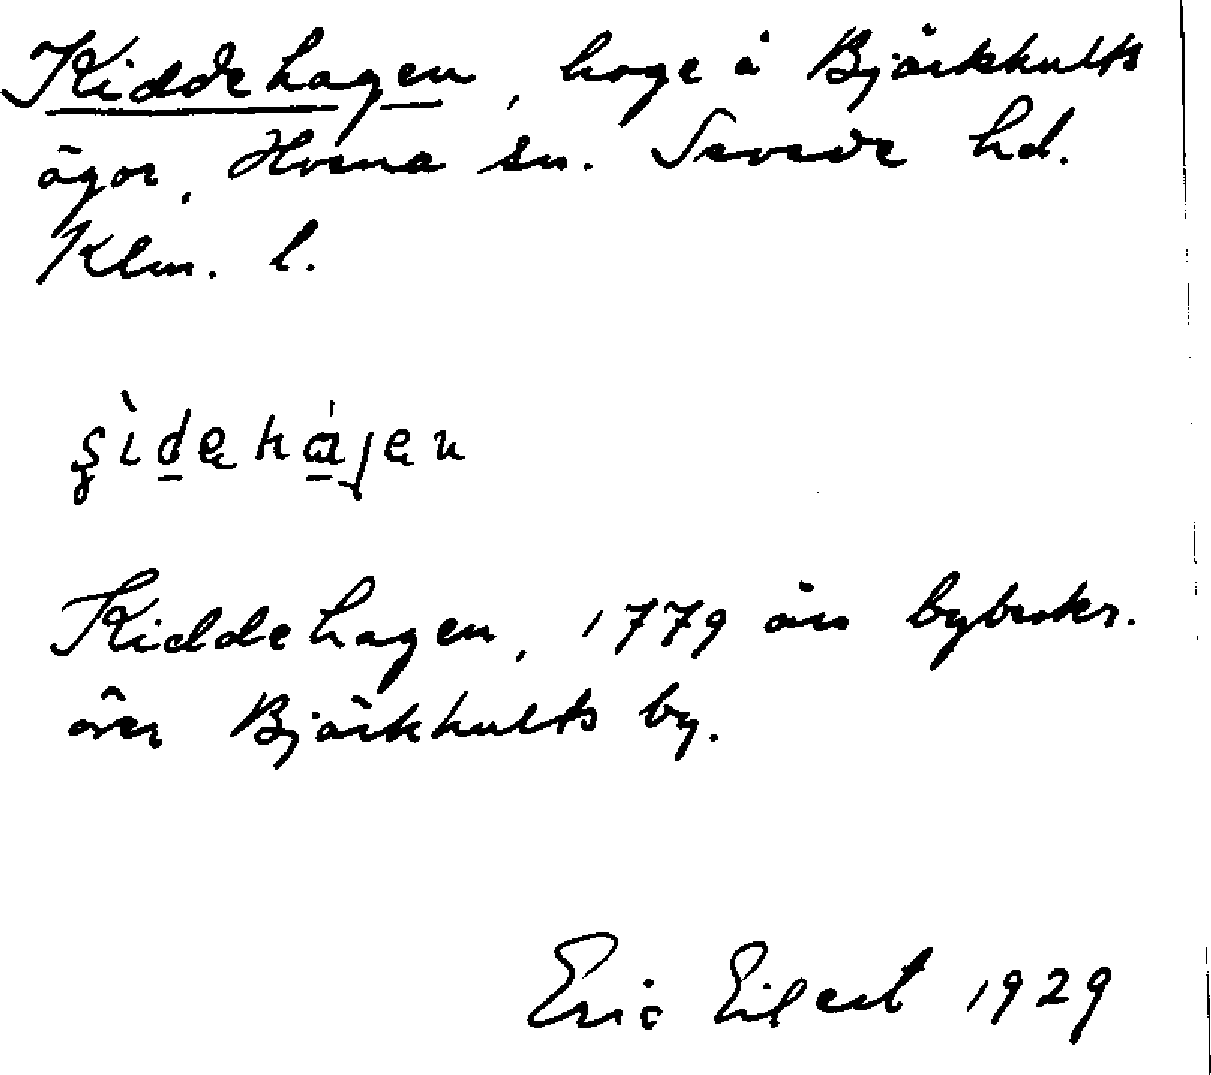 Kiddehagen, hage å Björkhults
ägor, Hvena sn. Sevede hd.
Klm. l.
şìdehájen
Kiddehagen, 1779 års bybeskr.
över Björkhults by.
Eric Eilert 1929